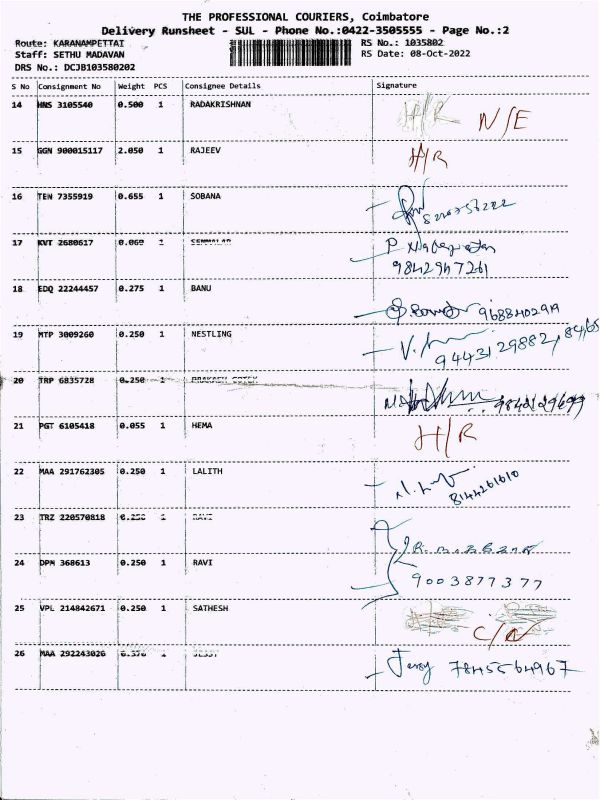 THE PROFESSIONAL COURIERS, Coimbatore
Delivery Runsheet - SUL - Phone No.:0422-3505555 - Page No.:2
Route: KARANAMPETTAI RS No.: 1035802
Staff: SETHU MADAVAN RS Date: 08-Oct-2022
DRS No.: DCJB103580202
S No Consignment No Weight PCS Consignee Details Signature
14 HNS 3105540 0.500 1 RADAKRISHNAN H/R N/E
15 GGN 900015117 2.050 1 RAJEEV H/R
16 TEN 7355919 0.655 1 SOBANA
17 KVT 2680617 0.060 1 SEMMALAR P
9842947261
18 EDQ 22244457 0.275 1 BANU
19 MTP 3009260 0.250 1 NESTLING
9443129882,
20 TRP 6835728 0.250 1 PRAKASH COTEX
21 PGT 6105418 0.055 1 HEMA H/R
22 MAA 291762305 0.250 1 LALITH
8144261610
23 TRZ 220570818 0.250 1 RAVI
24 DPM 368613 0.250 1 RAVI 9003877377
25 VPL 214842671 0.250 1 SATHESH
26 MAA 292243026 0.370 1 JESSY Jessy 7845564967